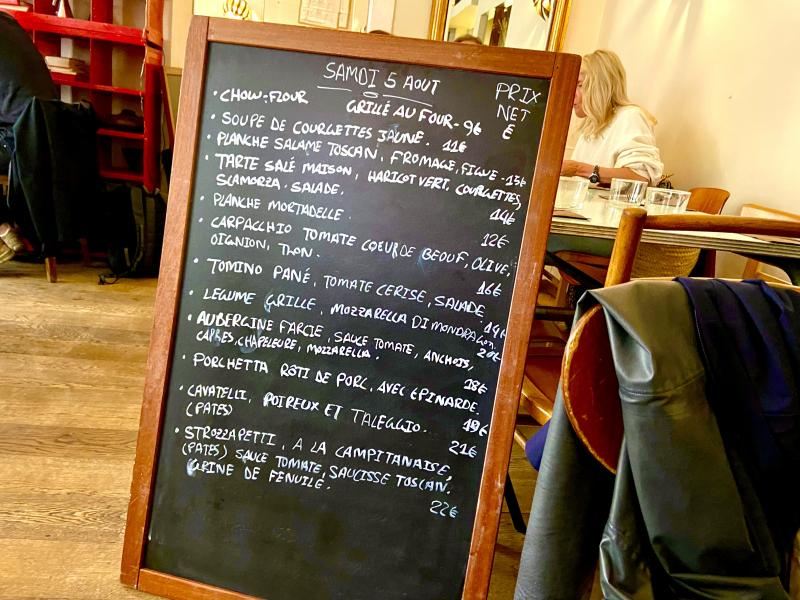 SAMDI 5 AOUT
PRIX
NET
€
• CHOW-FLOUR GRILLÉ AU FOUR - 9€
• SOUPE DE COURGETTES JAUNE. 11€
• PLANCHE SALAME TOSCAN, FROMAGE, FIGUE - 15€
• TARTE SALÉ MAISON, HARICOT VERT, COURGETTES,
SCAMORZA. SALADE. 14€
• PLANCHE MORTADELLE. 12€
• CARPACCHIO TOMATE COEUR DE BEOUF, OLIVE,
OIGNION, THON. 16€
• TOMINO PANÉ, TOMATE CERISE, SALADE 14€
• LEGUME GRILLE, MOZZARELLA DI MONDRAGON. 20€
• AUBERGINE FARCIE, SAUCE TOMATE, ANCHOIS,
CAPRES, CHAPELEURE, MOZZARELLA. 18€
• PORCHETTA RÔTI DE PORC, AVEC EPINARDE. 19€
• CAVATELLI, POIREUX ET TALEGGIO. 21€
(PATES)
• STROZZAPETTI, A LA CAMPITANAISE,
(PATES) SAUCE TOMATE, SAUCISSE TOSCAN.
GRINE DE FENUILE. 22€